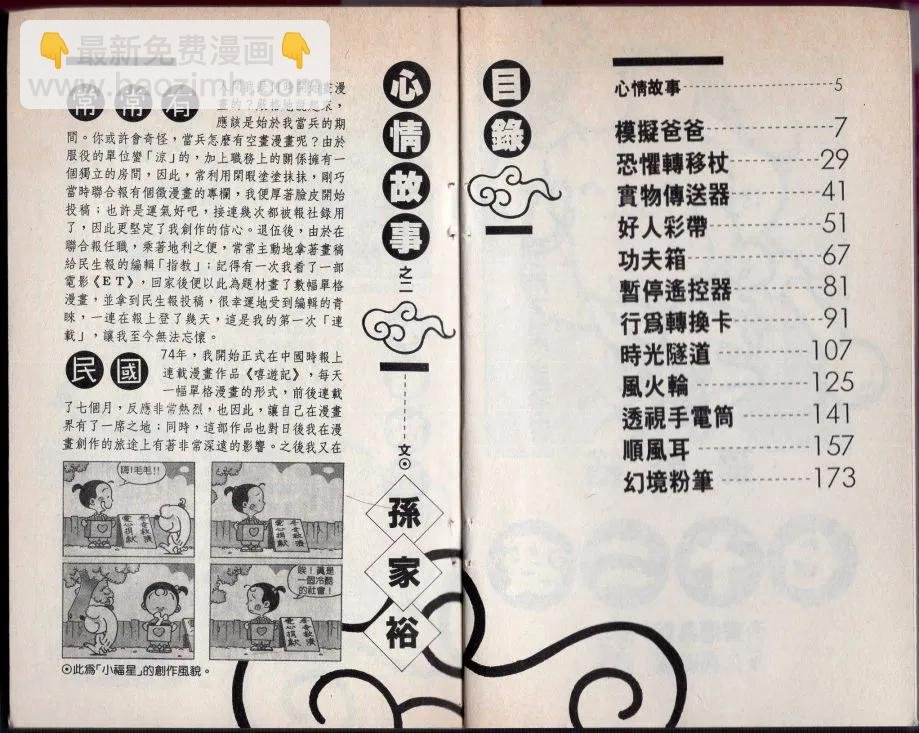 最新免费漫画
www.baozimh.com
目錄
心情故事 5
模擬爸爸 7
恐懼轉移杖 29
實物傳送器 41
好人彩帶 51
功夫箱 67
暫停遙控器 81
行爲轉換卡 91
時光隧道 107
風火輪 125
透視手電筒 141
順風耳 157
幻境粉筆 173
心情故事之二
文⊙孫家裕
常常有
畫的?嚴格地說起來,
應該是始於我當兵的期
間。你或許會奇怪,當兵怎麼有空畫漫畫呢?由於
服役的單位蠻「涼」的,加上職務上的關係擁有一
個獨立的房間,因此,常利用閑暇塗塗抹抹,剛巧
當時聯合報有個徵漫畫的專欄,我便厚著臉皮開始
投稿;也許是運氣好吧,接連幾次都被報社錄用
了,因此更堅定了我創作的信心。退伍後,由於在
聯合報任職,乘著地利之便,常常主動地拿著畫稿
給民生報的編輯「指教」;記得有一次我看了一部
電影《ET》,回家後便以此為題材畫了數幅單格
漫畫,並拿到民生報投稿,很幸運地受到編輯的青
睞,一連在報上登了幾天,這是我的第一次「連
載」,讓我至今無法忘懷。
民國
74年,我開始正式在中國時報上
連載漫畫作品《嘻遊記》,每天
一幅單格漫畫的形式,前後連載
了七個月,反應非常熱烈,也因此,讓自己在漫畫
界有了一席之地;同時,這部作品也對日後我在漫
畫創作的旅途上有著非常深遠的影響。之後我又在
嗨!毛毛!!
冬令救濟
愛心捐獻
冬令救濟
愛心捐獻
唉!眞是
一個冷酷
的社會!
冬令救濟
愛心捐獻
⊙此爲「小福星」的創作風貌。